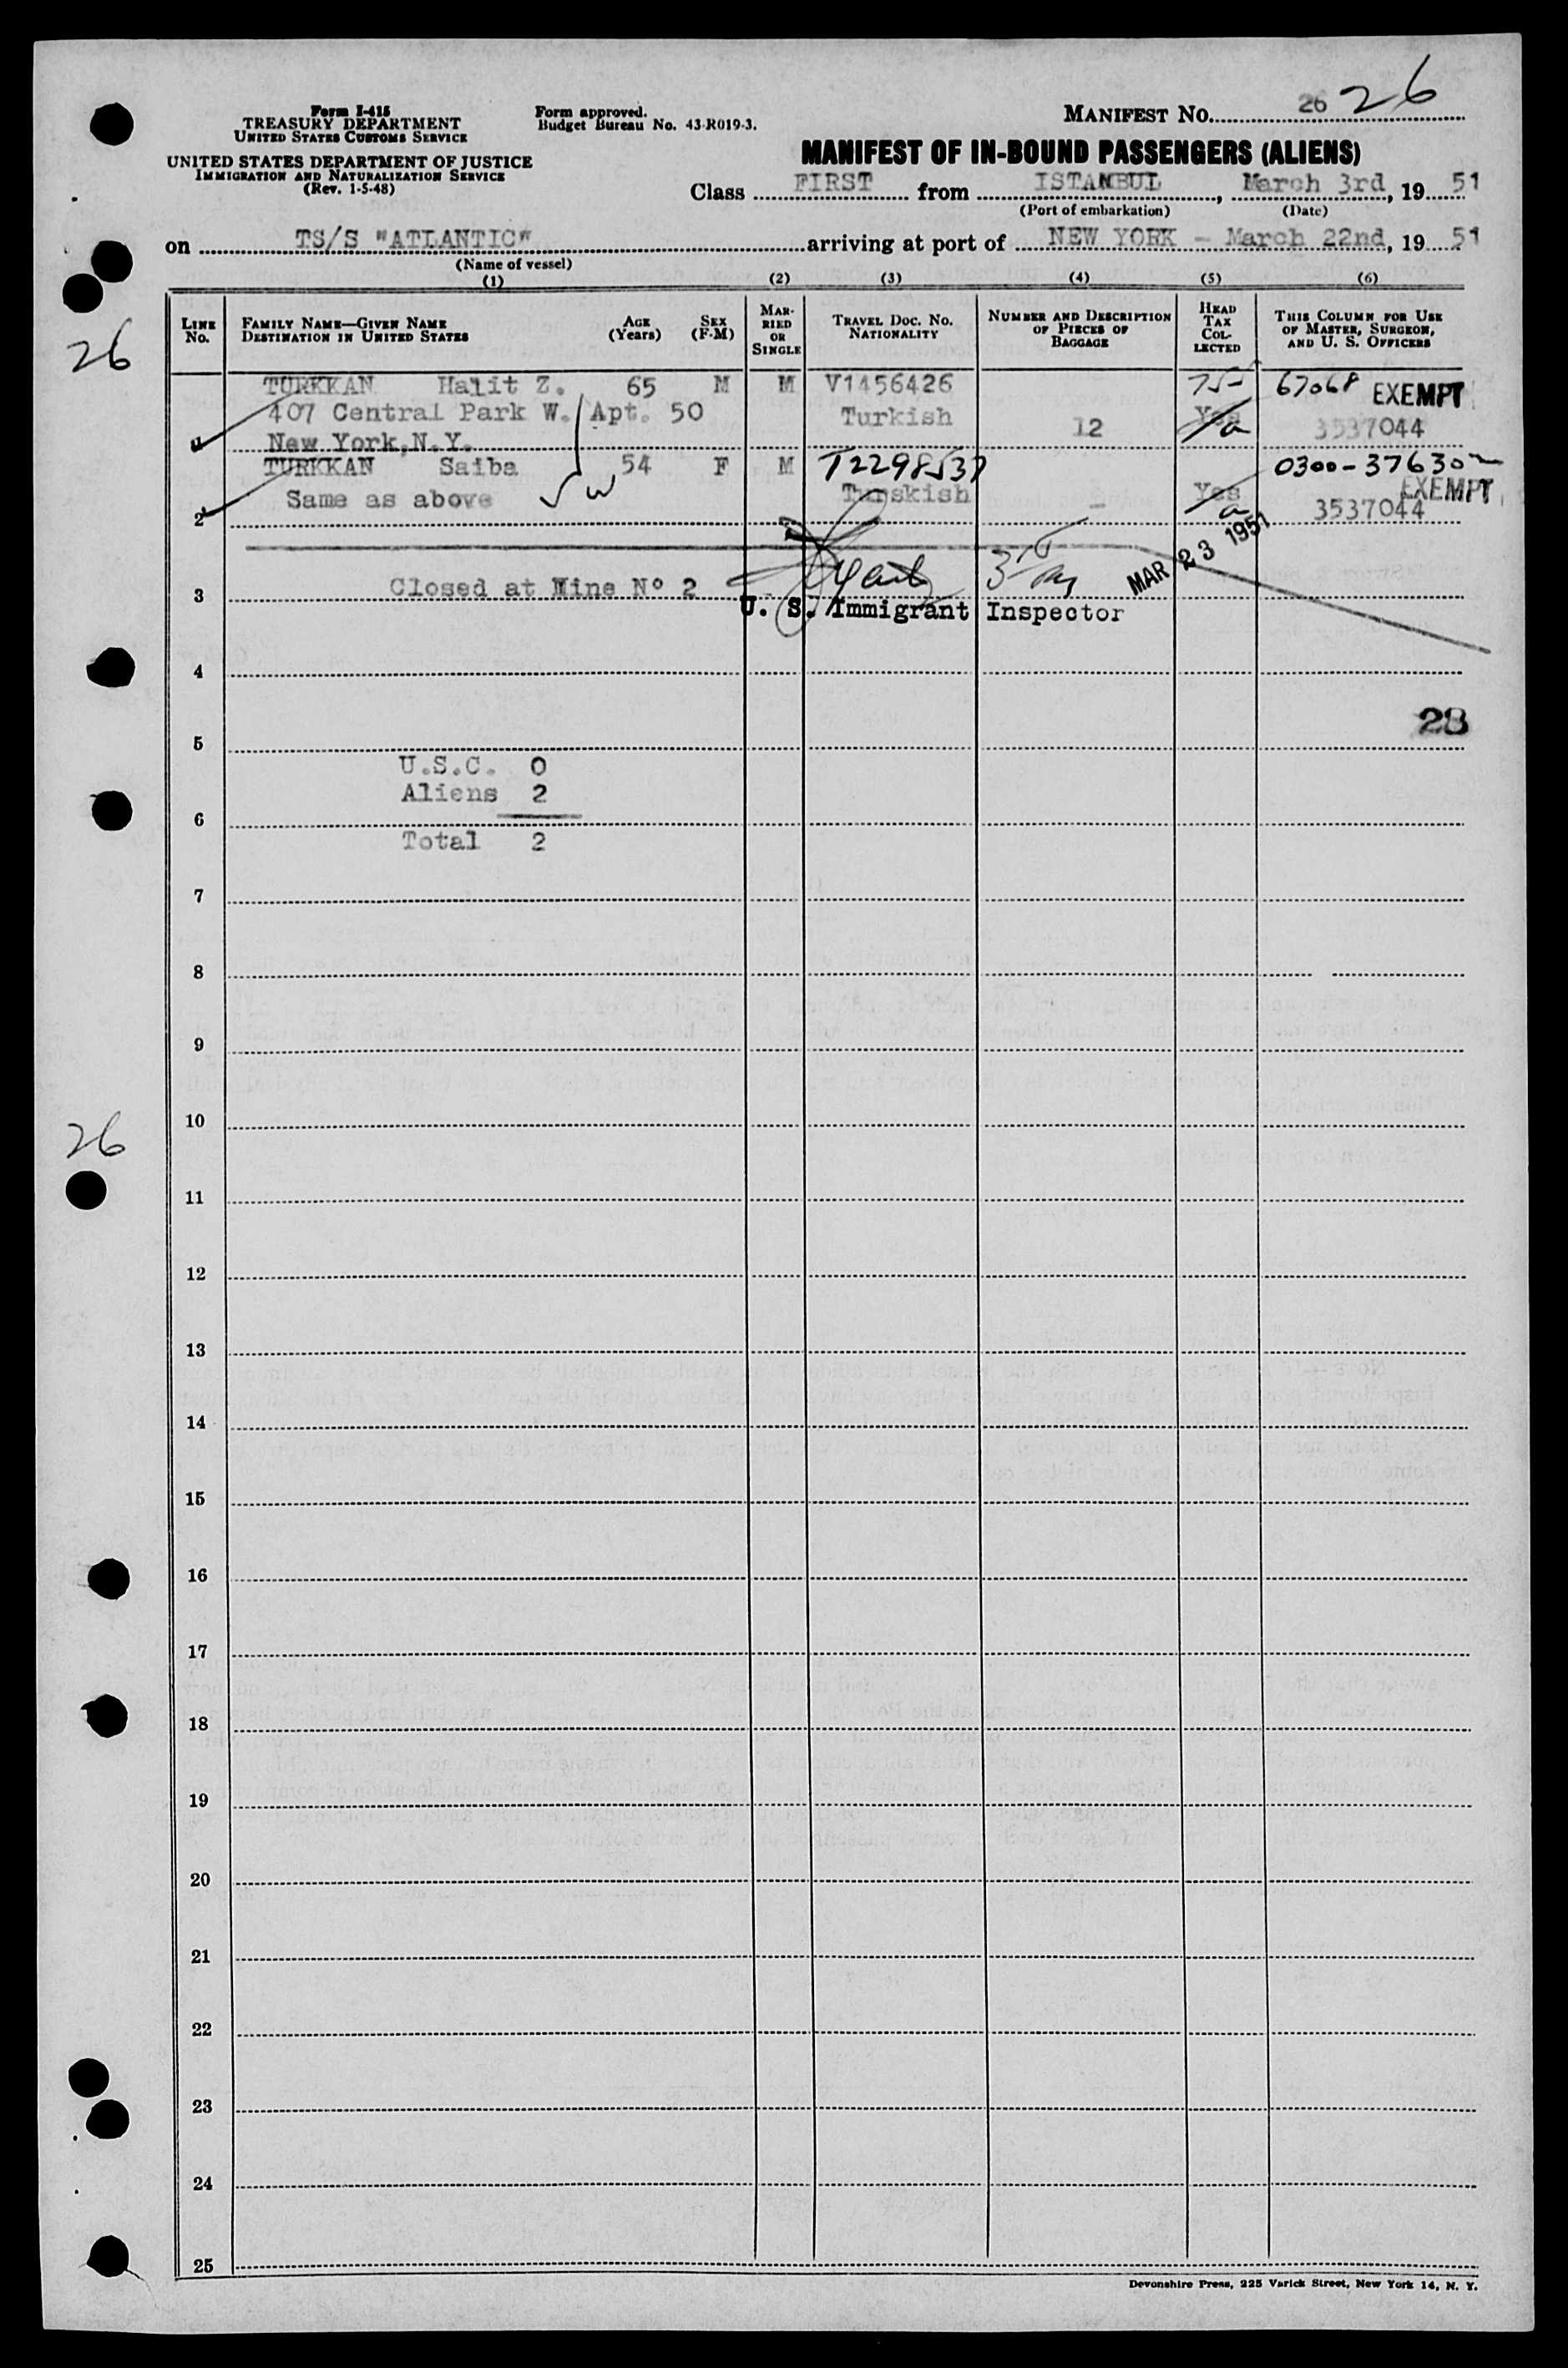 Form I-415
TREASURY DEPARTMENT
UNITED STATES CUSTOMS SERVICE
UNITED STATES DEPARTMENT OF JUSTICE
IMMIGRATION AND NATURALIZATION SERVICE
(Rev. 1-5-48)
Form approved.
Budget Bureau No. 43-R019-3.
MANIFEST NO. 26 26
MANIFEST OF IN-BOUND PASSENGERS (ALIENS)
Class FIRST from ISTANBUL, March 3rd, 19 51
(Port of embarkation) (Date)
on TS/S "ATLANTIC" arriving at port of NEW YORK - March 22nd, 19 51
(Name of vessel)
(1) (2) (3) (4) (5) (6)
LINE NO.
FAMILY NAME—GIVEN NAME
DESTINATION IN UNITED STATES
AGE (Years)
SEX (F-M)
MARRIED OR SINGLE
TRAVEL DOC. NO.
NATIONALITY
NUMBER AND DESCRIPTION OF PIECES OF BAGGAGE
HEAD TAX COLLECTED
THIS COLUMN FOR USE OF MASTER, SURGEON, AND U. S. OFFICERS
26
TURKKAN Halit Z. 65 M M V1456426 67068 EXEMPT
407 Central Park W. Apt. 50 Turkish 12 Yes 3537044
1 New York,N.Y.
TURKKAN Saiba 54 F M T2298537 0300-37630
Same as above Turskish - Yes EXEMPT
2 3537044
MAR 23 1951
3 Closed at Line Nº 2
U. S. Immigrant Inspector
4
28
5
U.S.C. 0
Aliens 2
6
Total 2
7
8
9
10
26
11
12
13
14
15
16
17
18
19
20
21
22
23
24
25
Devonshire Press, 225 Varick Street, New York 14, N. Y.